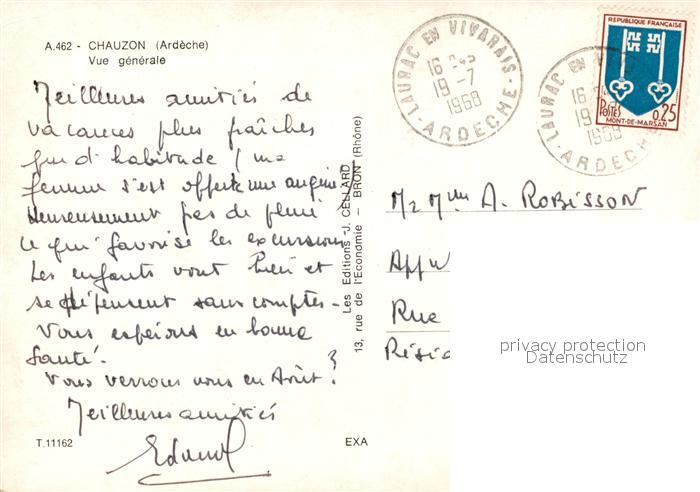 A.462 - CHAUZON (Ardèche)
Vue générale
Meilleures amitiés de
vacances plus fraîches
que d'habitude (ma
femme s'est offerte une angine)
Heureusement pas de pluie
ce qui favorise les excursions
Les enfants vont bien et
se dépensent sans compter-
Vous espérons en bonne
santé.
Vous verrons nous en Août ?
Meilleures amitiés
T.11162
EXA
Les Editions J. CELLARD
13, rue de l'Economie - BRON (Rhône)
LAURAC EN VIVARAIS
16 H45
19-7
1968
ARDECHE
LAURAC EN VIV
16 H
19
1968
ARDECHE
REPUBLIQUE FRANÇAISE
POSTES
0,25
MONT-DE-MARSAN
A. ROBISSON
App
Rue
Résid
privacy protection
Datenschutz